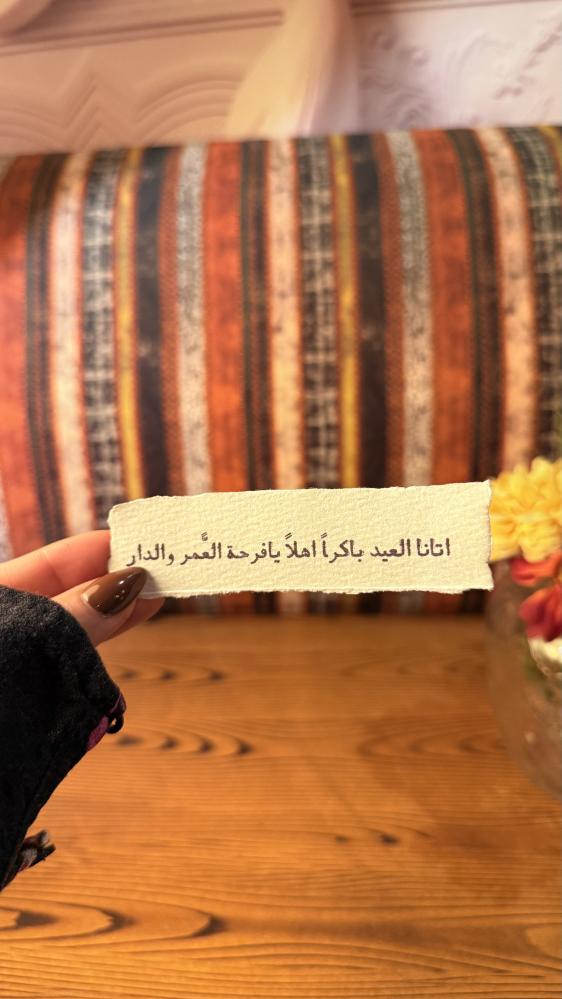 اتانا العيد باكراً اهلاً يافرحة العَّمر والدار